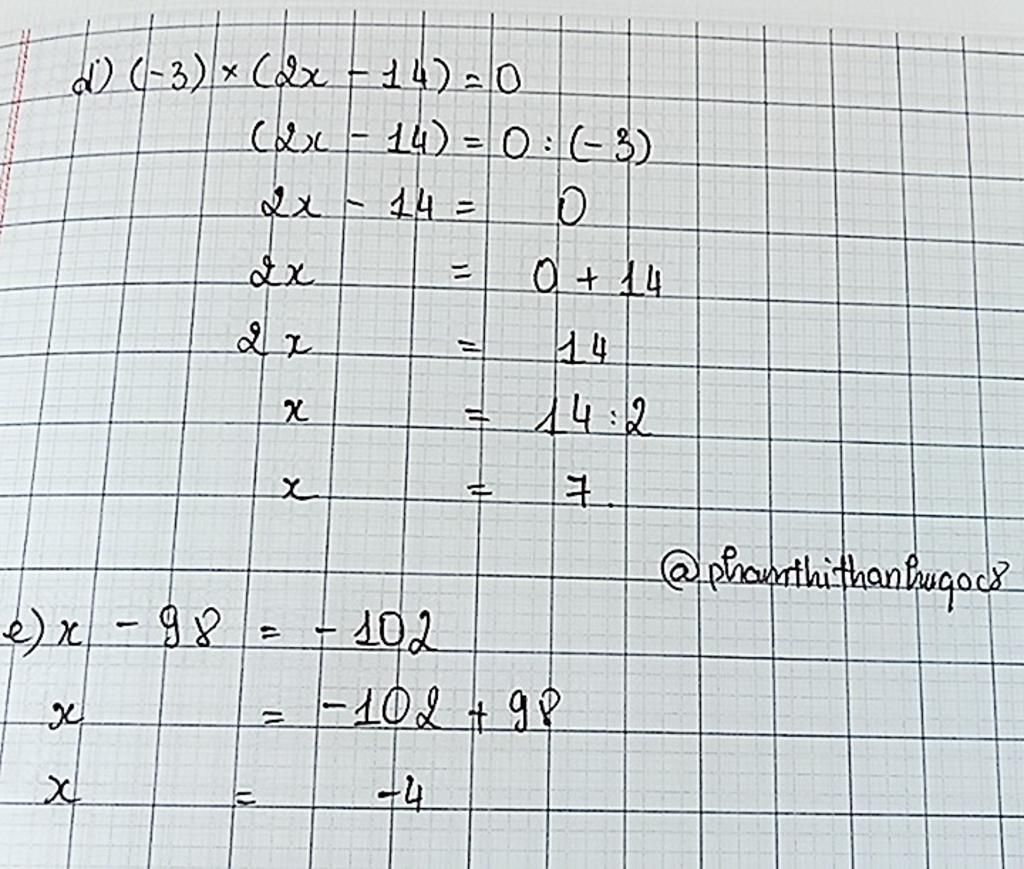 d) (-3) × (2x - 14) = 0
(2x - 14) = 0 : (-3)
2x - 14 = 0
2x = 0 + 14
2x = 14
x = 14 : 2
x = 7.
@phamthithanhngoc8
e) x - 98 = -102
x = -102 + 98
x = -4